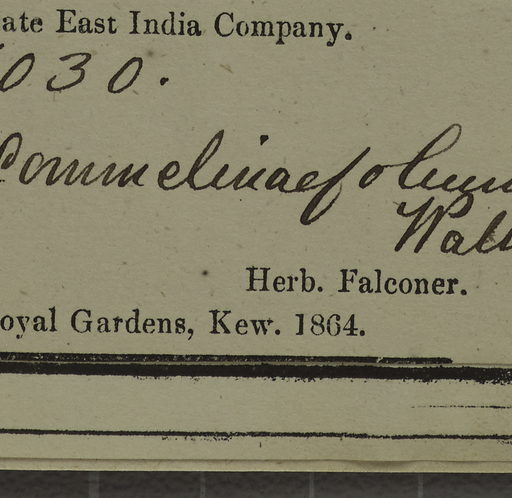 ate East India Company.
030.
Commelinaefolium
Wall
Herb. Falconer.
oyal Gardens, Kew. 1864.